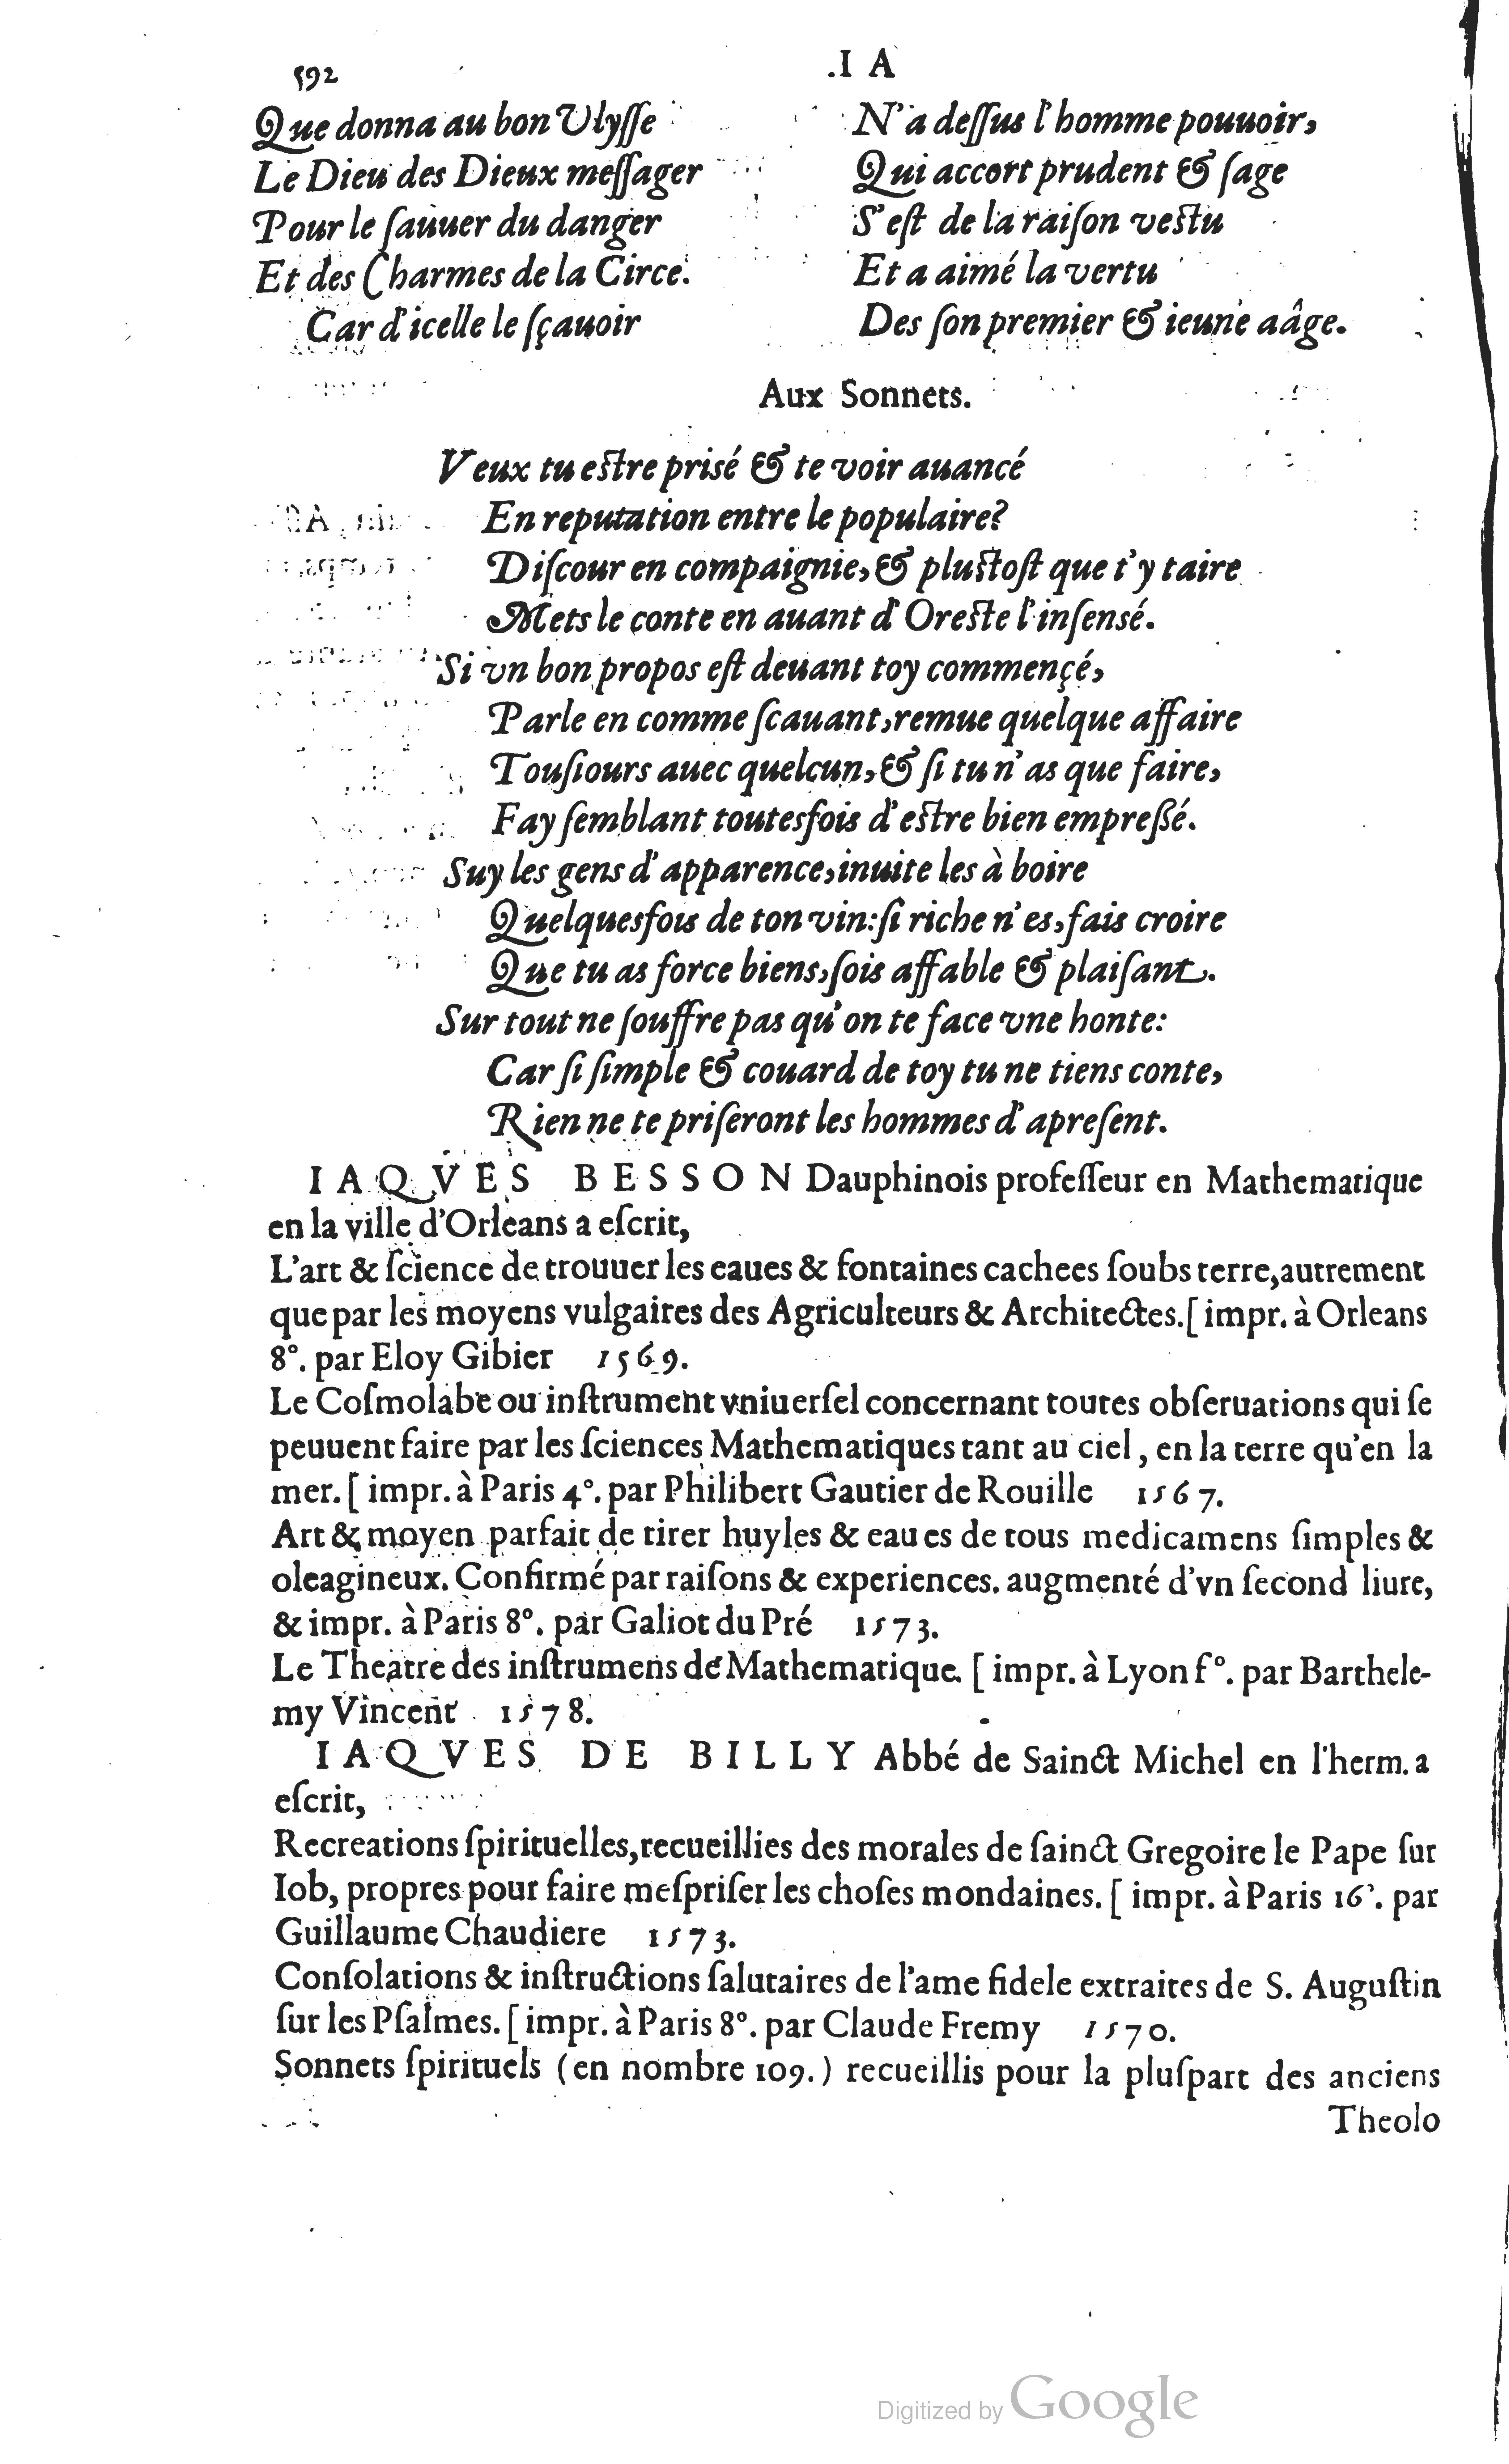 592
.I A
Que donna au bon Ulysse
Le Dieu des Dieux meſſager
Pour le ſauuer du danger
Et des Charmes de la Circe.
Car d'icelle le ſçauoir
N'a deſſus l'homme pouuoir,
Qui accort prudent & ſage
S'eſt de la raiſon veſtu
Et a aimé la vertu
Des ſon premier & ieune aâge.
Aux Sonnets.
Veux tu eſtre prisé & te voir auancé
En reputation entre le populaire?
Diſcour en compaignie, & pluſtoſt que t'y taire
Mets le conte en auant d'Oreſte l'inſensé.
Si vn bon propos eſt deuant toy commençé,
Parle en comme ſcauant, remue quelque affaire
Touſiours auec quelcun, & ſi tu n'as que faire,
Fay ſemblant toutesfois d'eſtre bien empreßé.
Suy les gens d'apparence, inuite les à boire
Quelquesfois de ton vin: ſi riche n'es, fais croire
Que tu as force biens, ſois affable & plaiſant.
Sur tout ne ſouffre pas qu'on te face vne honte:
Car ſi ſimple & couard de toy tu ne tiens conte,
Rien ne te priſeront les hommes d'apreſent.
IAQVES BESSON Dauphinois profeſſeur en Mathematique
en la ville d'Orleans a eſcrit,
L'art & ſcience de trouuer les eaues & fontaines cachees ſoubs terre, autrement
que par les moyens vulgaires des Agriculteurs & Architectes. [ impr. à Orleans
8°. par Eloy Gibier 1569.
Le Coſmolabe ou inſtrument vniuerſel concernant toutes obſeruations qui ſe
peuuent faire par les ſciences Mathematiques tant au ciel, en la terre qu'en la
mer. [ impr. à Paris 4°. par Philibert Gautier de Rouille 1567.
Art & moyen parfait de tirer huyles & eaues de tous medicamens ſimples &
oleagineux. Confirmé par raiſons & experiences. augmenté d'vn ſecond liure,
& impr. à Paris 8°. par Galiot du Pré 1573.
Le Theatre des inſtrumens de Mathematique. [ impr. à Lyon f°. par Barthele-
my Vincent 1578.
IAQVES DE BILLY Abbé de Sainct Michel en l'herm. a
eſcrit,
Recreations ſpirituelles, recueillies des morales de ſainct Gregoire le Pape ſur
Iob, propres pour faire meſpriſer les choſes mondaines. [ impr. à Paris 16°. par
Guillaume Chaudiere 1573.
Conſolations & inſtructions ſalutaires de l'ame fidele extraites de S. Auguſtin
ſur les Pſalmes. [ impr. à Paris 8°. par Claude Fremy 1570.
Sonnets ſpirituels (en nombre 109.) recueillis pour la pluſpart des anciens
Theolo
Digitized by Google